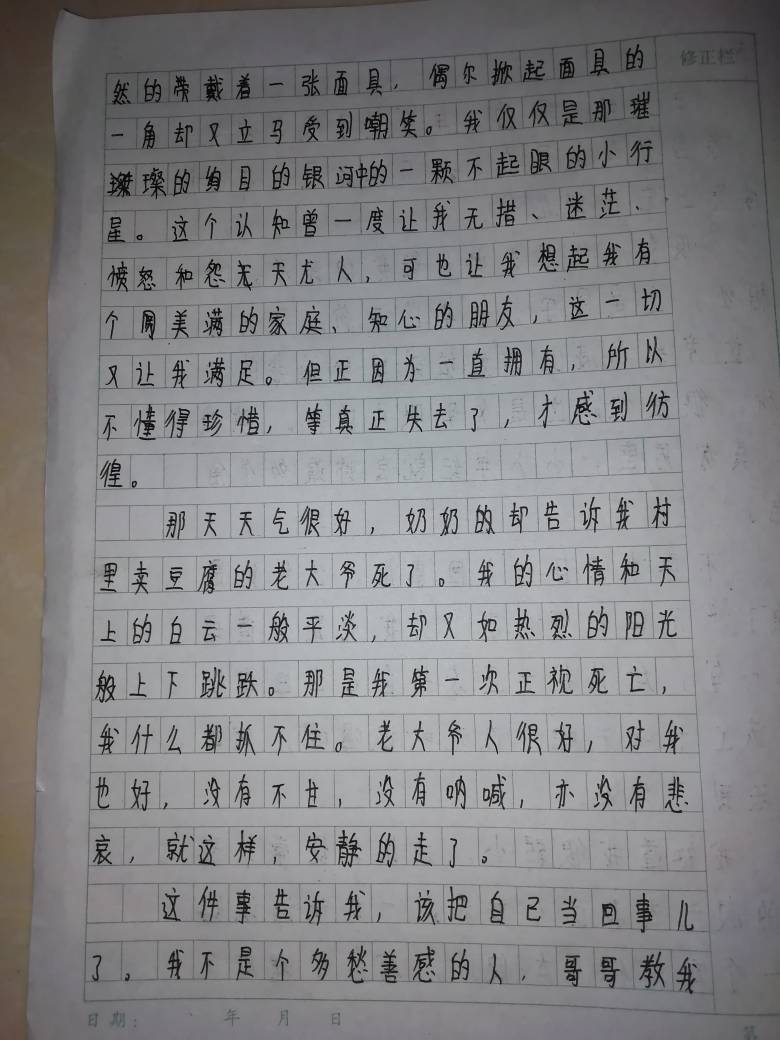 修正栏
然的带戴着一张面具，偶尔掀起面具的
一角却又立马受到嘲笑。我仅仅是那璀
璨的绚目的银河中的一颗不起眼的小行
星。这个认知曾一度让我无措、迷茫、
愤怒和怨天尤人，可也让我想起我有
个美满的家庭、知心的朋友，这一切
又让我满足。但正因为一直拥有，所以
不懂得珍惜，等真正失去了，才感到彷
徨。
那天天气很好，奶奶的却告诉我村
里卖豆腐的老大爷死了。我的心情和天
上的白云一般平淡，却又如热烈的阳光
般上下跳跃。那是我第一次正视死亡，
我什么都抓不住。老大爷人很好，对我
也好，没有不甘，没有呐喊，亦没有悲
哀，就这样，安静的走了。
这件事告诉我，该把自己当回事儿
了。我不是个多愁善感的人，哥哥教我
日期： 年 月 日
第